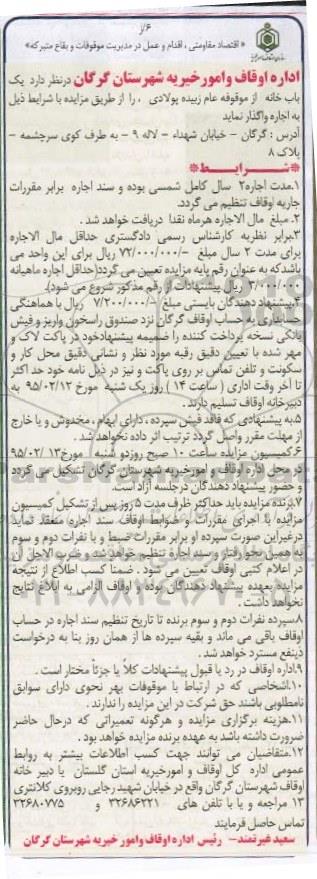 ۶/ز
« اقتصاد مقاومتی ، اقدام و عمل در مدیریت موقوفات و بقاع متبرکه »
اداره اوقاف و امور خیریه شهرستان گرگان درنظر دارد یک
باب خانه از موقوفه عام زبیده پولادی ، را از طریق مزایده با شرایط ذیل
به اجاره واگذار نماید
آدرس : گرگان – خیابان شهداء – لاله ۹ – به طرف کوی سرچشمه –
پلاک ۸
*شرایط*
۱.مدت اجاره۲ سال کامل شمسی بوده و سند اجاره برابر مقررات
جاریه اوقاف تنظیم می گردد.
۲. مبلغ مال الاجاره هرماه نقدا دریافت خواهد شد .
۳.برابر نظریه کارشناس رسمی دادگستری حداقل مال الاجاره
برای مدت ۲ سال مبلغ -/۷۲/۰۰۰/۰۰۰ ریال برای این واحد می
باشدکه به عنوان رقم پایه مزایده تعیین می گردد(حداقل اجاره ماهیانه
۳/۰۰۰/۰۰۰ ریال پیشنهادات از رقم مذکور شروع می شود).
۴.پیشنهاد دهندگان بایستی مبلغ -/۷/۲۰۰/۰۰۰ ریال با هماهنگی
حسابداری به حساب اوقاف گرگان نزد صندوق راسخون واریز و فیش
بانکی نسخه پرداخت کننده را ضمیمه پیشنهادخود در پاکت لاک و
مهر شده با تعیین دقیق رقبه مورد نظر و نشانی دقیق محل کار و
سکونت و تلفن تماس بر روی پاکت و نیز در ذیل نامه خود حداکثر
تا آخر وقت اداری ( ساعت ۱۴ ) روز یک شنبه مورخ ۹۵/۰۲/۱۲ به
دبیرخانه اوقاف تسلیم دارند .
۵.به پیشنهادی که فاقد فیش سپرده ، دارای ابهام ، مخدوش و یا خارج
از مهلت مقرر واصل گردد ترتیب اثر داده نخواهد شد .
۶.کمیسیون مزایده ساعت ۱۰ صبح روزدو شنبه مورخ۹۵/۰۲/۱۳
در محل اداره اوقاف و امورخیریه شهرستان گرگان تشکیل می گردد
و حضور پیشنهاد دهندگان درجلسه آزاد است.
۷.برنده مزایده باید حداکثر ظرف مدت ۵ روز پس از تشکیل کمیسیون
مزایده با اجرای مقررات و ضوابط اوقاف سند اجاره منعقد نماید
درغیراین صورت سپرده او برابر مقررات ضبط و با نفرات دوم و سوم
به همین نحو رفتار و سند اجاره تنظیم خواهد شد و ضرب الاجل آن
در اعلام کتبی اوقاف تعیین می شود . ضمنا کسب اطلاع از نتیجه
مزایده بعهده پیشنهاد دهندگان بوده و اوقاف الزامی به ابلاغ نتایج
نخواهد داشت .
۸.سپرده نفرات دوم و سوم برنده تا تاریخ تنظیم سند اجاره در حساب
اوقاف باقی می ماند و بقیه سپرده ها از همان روز بنا به درخواست
ذینفع مسترد خواهد شد .
۹.اداره اوقاف در رد یا قبول پیشنهادات کلاً یا جزئاً مختار است .
۱۰.اشخاصی که در ارتباط با موقوفات بهر نحوی دارای سوابق
نامطلوبی باشند حق شرکت در این مزایده را ندارند .
۱۱.هزینه برگزاری مزایده و هرگونه تعمیراتی که درحال حاضر
ضرورت داشته باشد به عهده برنده مزایده خواهد بود .
۱۲.متقاضیان می توانند جهت کسب اطلاعات بیشتر به روابط
عمومی اداره کل اوقاف و امورخیریه استان گلستان یا دبیر خانه
اوقاف شهرستان گرگان واقع در خیابان شهید رجایی روبروی کلانتری
۱۳ مراجعه و یا با تلفن های ۳۲۶۸۶۲۲۱ و ۳۲۶۸۰۷۷۵
تماس حاصل فرمایند
سعید غیرتمند– رئیس اداره اوقاف وامور خیریه شهرستان گرگان